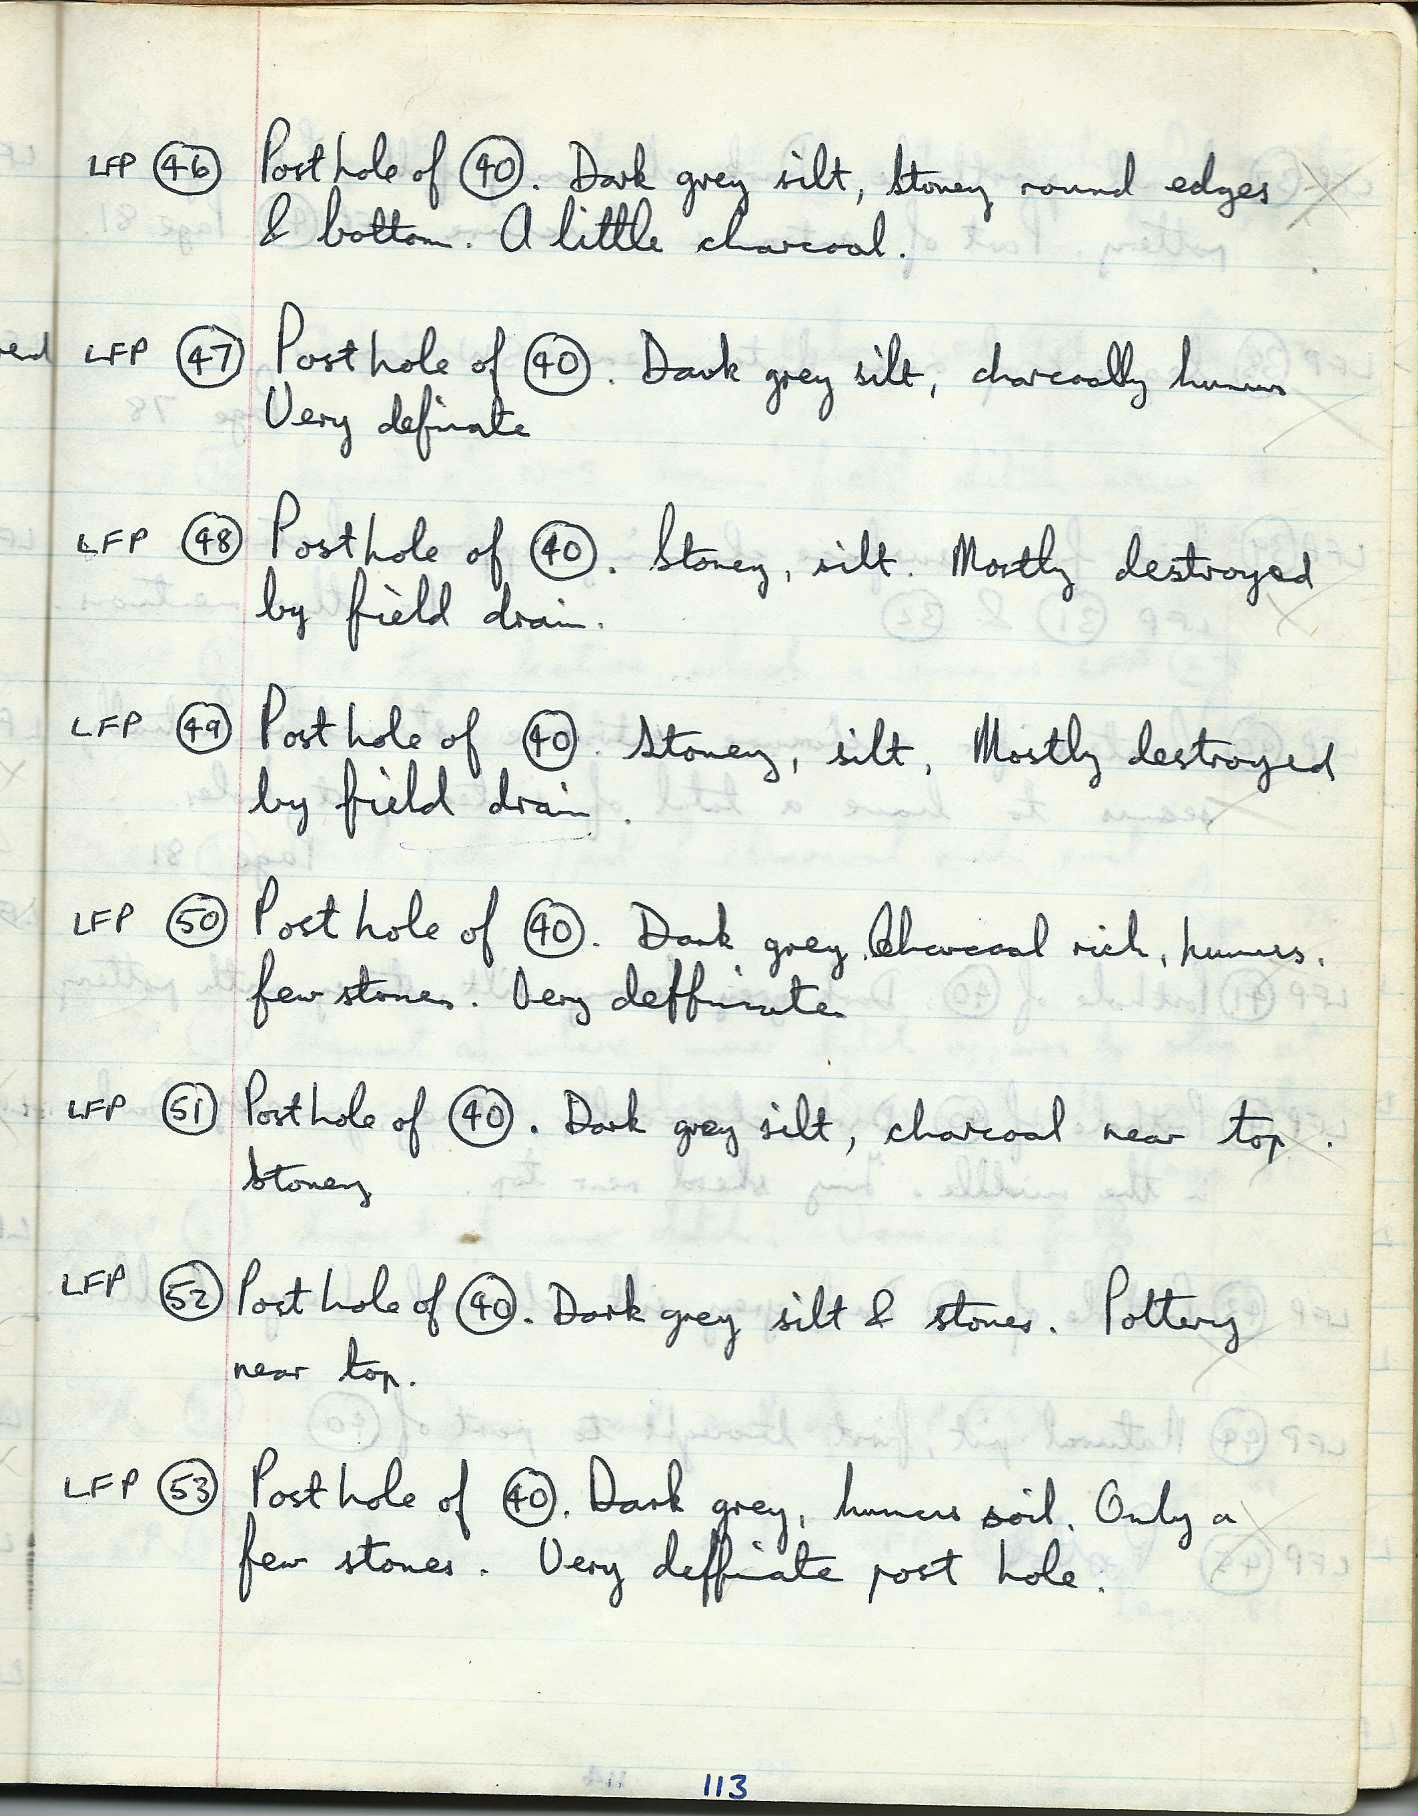 LFP 46 Post hole of 40. Dark grey silt, stoney round edges
& bottom. A little charcoal.
LFP 47 Post hole of 40. Dark grey silt, charcoally humus
Very definate
LFP 48 Post hole of 40. Stoney, silt. Mostly destroyed
by field drain.
LFP 49 Post hole of 40. Stoney, silt, Mostly destroyed
by field drain.
LFP 50 Post hole of 40. Dark grey Charcoal rich, humus.
few stones. Very deffinate.
LFP 51 Post hole of 40. Dark grey silt, charcoal near top.
Stoney
LFP 52 Post hole of 40. Dark grey silt & stones. Pottery
near top.
LFP 53 Post hole of 40. Dark grey, humus soil. Only a
few stones. Very deffinate post hole.
113